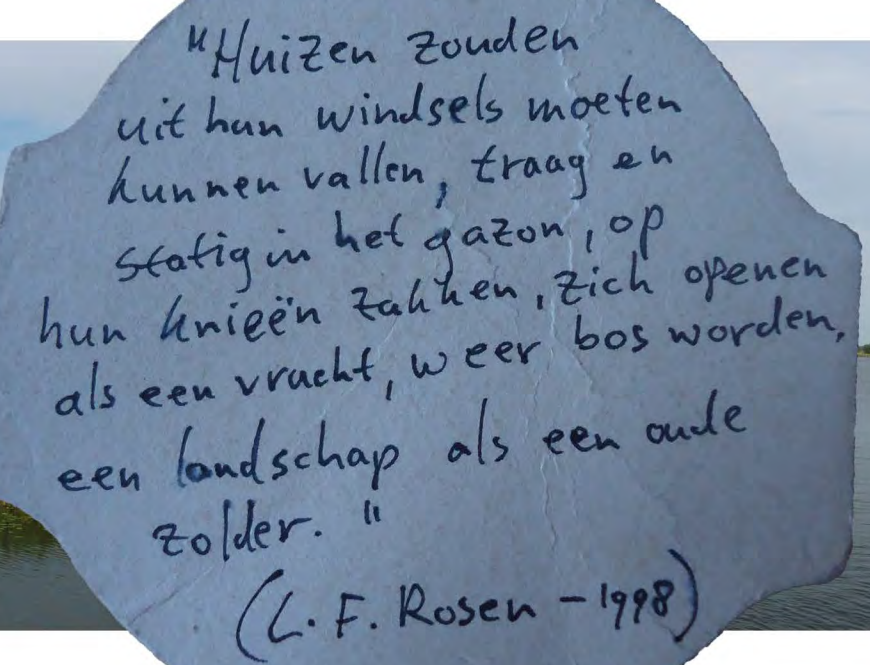 "Huizen zouden
uit hun windsels moeten
kunnen vallen, traag en
statig in het gazon, op
hun knieën zakken, zich openen
als een vracht, weer bos worden,
een landschap als een oude
zolder."
(L. F. Rosen - 1998)